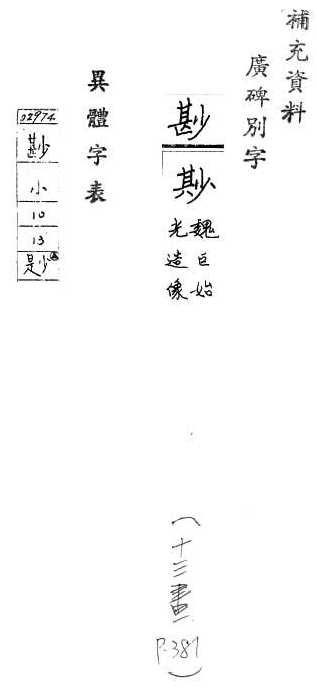 補充資料
廣碑別字
尠
魏巨始
光造像
(十三畫 P.381)
異體字表
02974
尠
小
10
13
尟